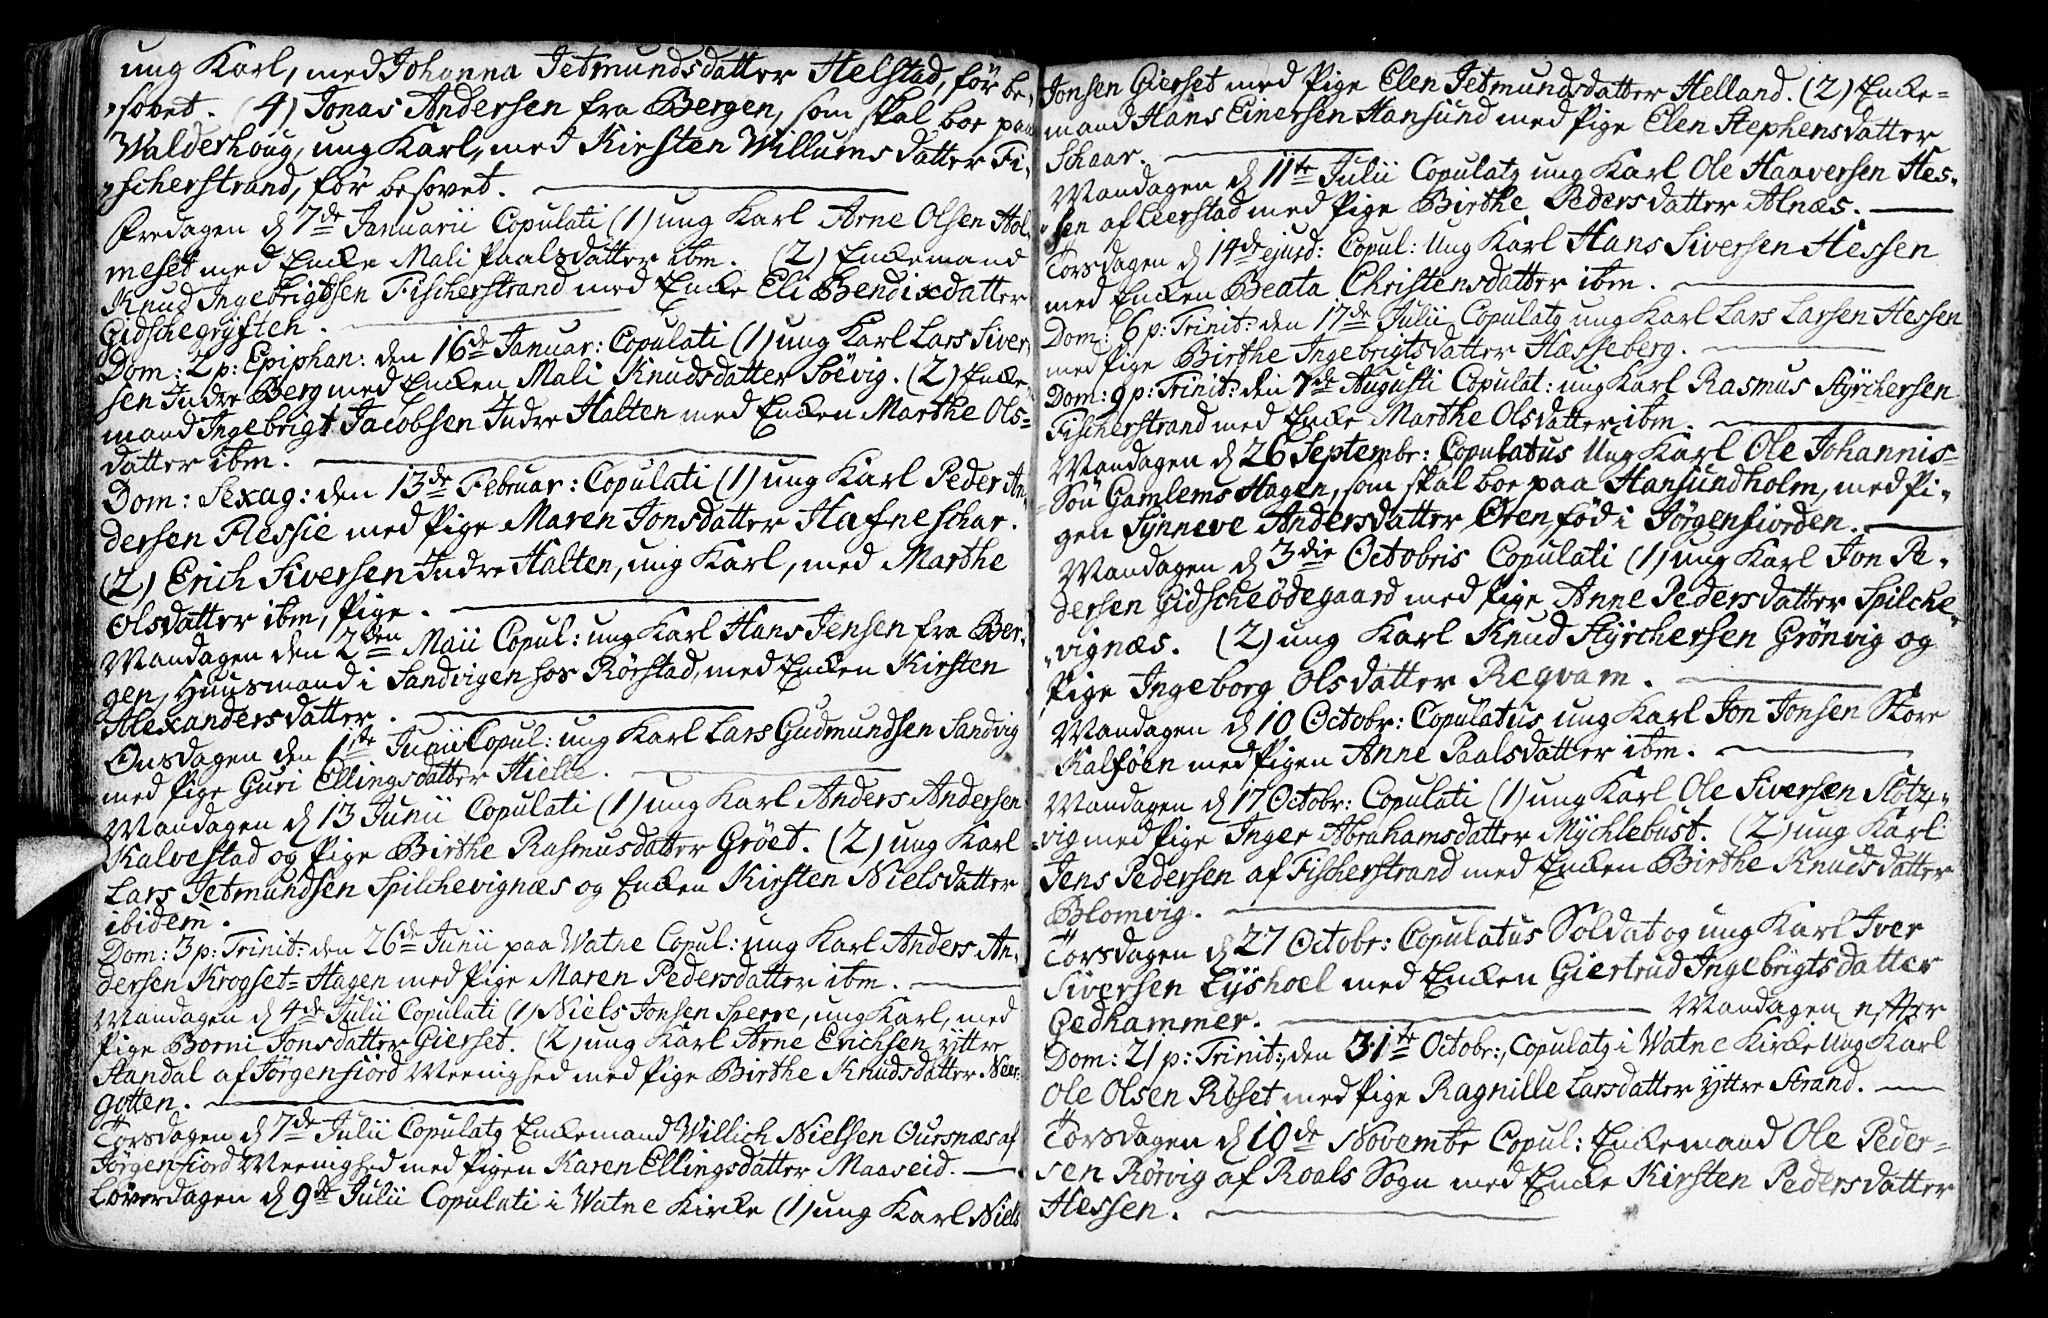 ung Karl, med Johanna Jetmundsdatter Helstad, før be-
sovet. (4) Jonas Andersen fra Bergen, som skal boe paa
Walderhoug, ung Karl, med Kirsten Willumsdatter Fi-
scherstrand, før besovet.
Fredagen d. 7de Januarii Copulati (1) ung Karl Arne Olsen Hol-
meset med Encke Mali Paalsdatter ibm. (2) Enckemand
Knud Ingebrigtsen Fischerstrand med Encke Eli Bendixdatter
Gidschegryften.
Dom: 2 p: Epiphan: den 16de Januar: Copulati (1) ung Karl Lars Siver-
sen Indre Berg med Encken Mali Knudsdatter Söevig. (2) Encke-
mand Ingebrigt Jacobsen Indre Halten med Encken Marthe Ols-
datter ibm.
Dom: Sexag: den 13de Februar: Copulati (1) ung Karl Peder An-
dersen Flessie med Pige Maren Jonsdatter Hafneschar.
(2) Erich Siversen Indre Halten, ung Karl, med Marthe
Olsdatter ibm, Pige.
Mandagen den 2den Maii Copul: ung Karl Hans Jensen fra Ber-
gen, Huusmand i Sandvigen hos Rörstad, med Encken Kirsten
Alexandersdatter.
Onsdagen den 1ste Junii Copul: ung Karl Lars Gudmundsen Sandvig
med Pige Guri Ellingsdatter Hielle.
Mandagen d. 13 Junii Copulati (1) ung Karl Anders Andersen
Kalvestad og Pige Birthe Rasmusdatter Gröet. (2) ung Karl
Lars Jetmundsen Spilchevignæs og Encken Kirsten Nielsdatter
ibidem.
Dom: 3 p: Trinit: den 26de Junii paa Watne Copul: ung Karl Anders An-
dersen Krogset-Hagen med Pige Maren Pedersdatter ibm.
Mandagen d. 4de Julii Copulati (1) Niels Jonsen Sperre, ung Karl, med
Pige Borni Jonsdatter Gierset. (2) ung Karl Arne Erichsen yttre
Standal af Jörgenfiord Meenighed med Pige Birthe Knudsdatter Neer-
gotten.
Torsdagen d. 7de Julii Copulatg Enckemand Willich Nielsen Oursnæs af
Jörgenfiord Meenighed med Pigen Karen Ellingsdatter Maaseid.
Löverdagen d. 9de Julii Copulati i Watne Kircke (1) ung Karl Niels
Jonsen Gierset med Pige Elen Jetmundsdatter Helland. (2) Encke-
mand Hans Einersen Hansund med Pige Elen Stephensdatter
Schaar.
Mandagen d. 11te Julii Copulatg ung Karl Ole Haaversen Hes-
sen af Leerstad med Pige Birthe Pedersdatter Alnæs.
Torsdagen d. 14de ejusd: Copul: Ung Karl Hans Siversen Hessen
med Encken Beata Christensdatter ibm.
Dom: 6 p: Trinit: den 17de Julii Copulatg ung Karl Lars Larsen Hessen
med Pige Birthe Ingebrigtsdatter Hæsseberg.
Dom: 9 p: Trinit: den 7de Augusti Copulat: ung Karl Rasmus Styrchersen
Fischerstrand med Encke Marthe Olsdatter ibm.
Mandagen d. 26 Septembr: Copulatus Ung Karl Ole Johannis-
Sön Gamlems Hagen, som skal boe paa Hansundholm, med Pi-
gen Synneve Andersdatter Ören, fød i Jörgenfiorden.
Mandagen d. 3die Octobris Copulati (1) ung Karl Jon Pe-
dersen Gidscheödegaard med Pige Anne Pedersdatter Spilche-
vignæs. (2) ung Karl Knud Styrchersen Grönvig og
Pige Ingeborg Olsdatter Reqvam.
Mandagen d. 10 Octobr: Copulatus ung Karl Jon Jonsen Store
Kalföen med Pigen Anne Paalsdatter ibm.
Mandagen d. 17 Octobr: Copulati (1) ung Karl Ole Siversen Slotz-
vig med Pige Inger Abrahamsdatter Mychlebust. (2) ung Karl
Jens Pedersen af Fischerstrand med Encken Birthe Knudsdatter
Blomvig.
Torsdagen d. 27 Octobr: Copulatus Soldat og ung Karl Iver
Siversen Eyshoel med Encken Giertrud Ingebrigtsdatter
Gedhammer. Mandagen efter
Dom: 21 p: Trinit:, den 31te Octobr:, Copulatg i Watne Kirke ung Karl
Ole Olsen Röset med Pige Ragnille Larsdatter yttre Strand.
Torsdagen d. 10de Novembr Copul: Enckemand Ole Peder-
sen Rörvig af Roals Sogn med Encke Kirsten Pedersdatter
Hessen.